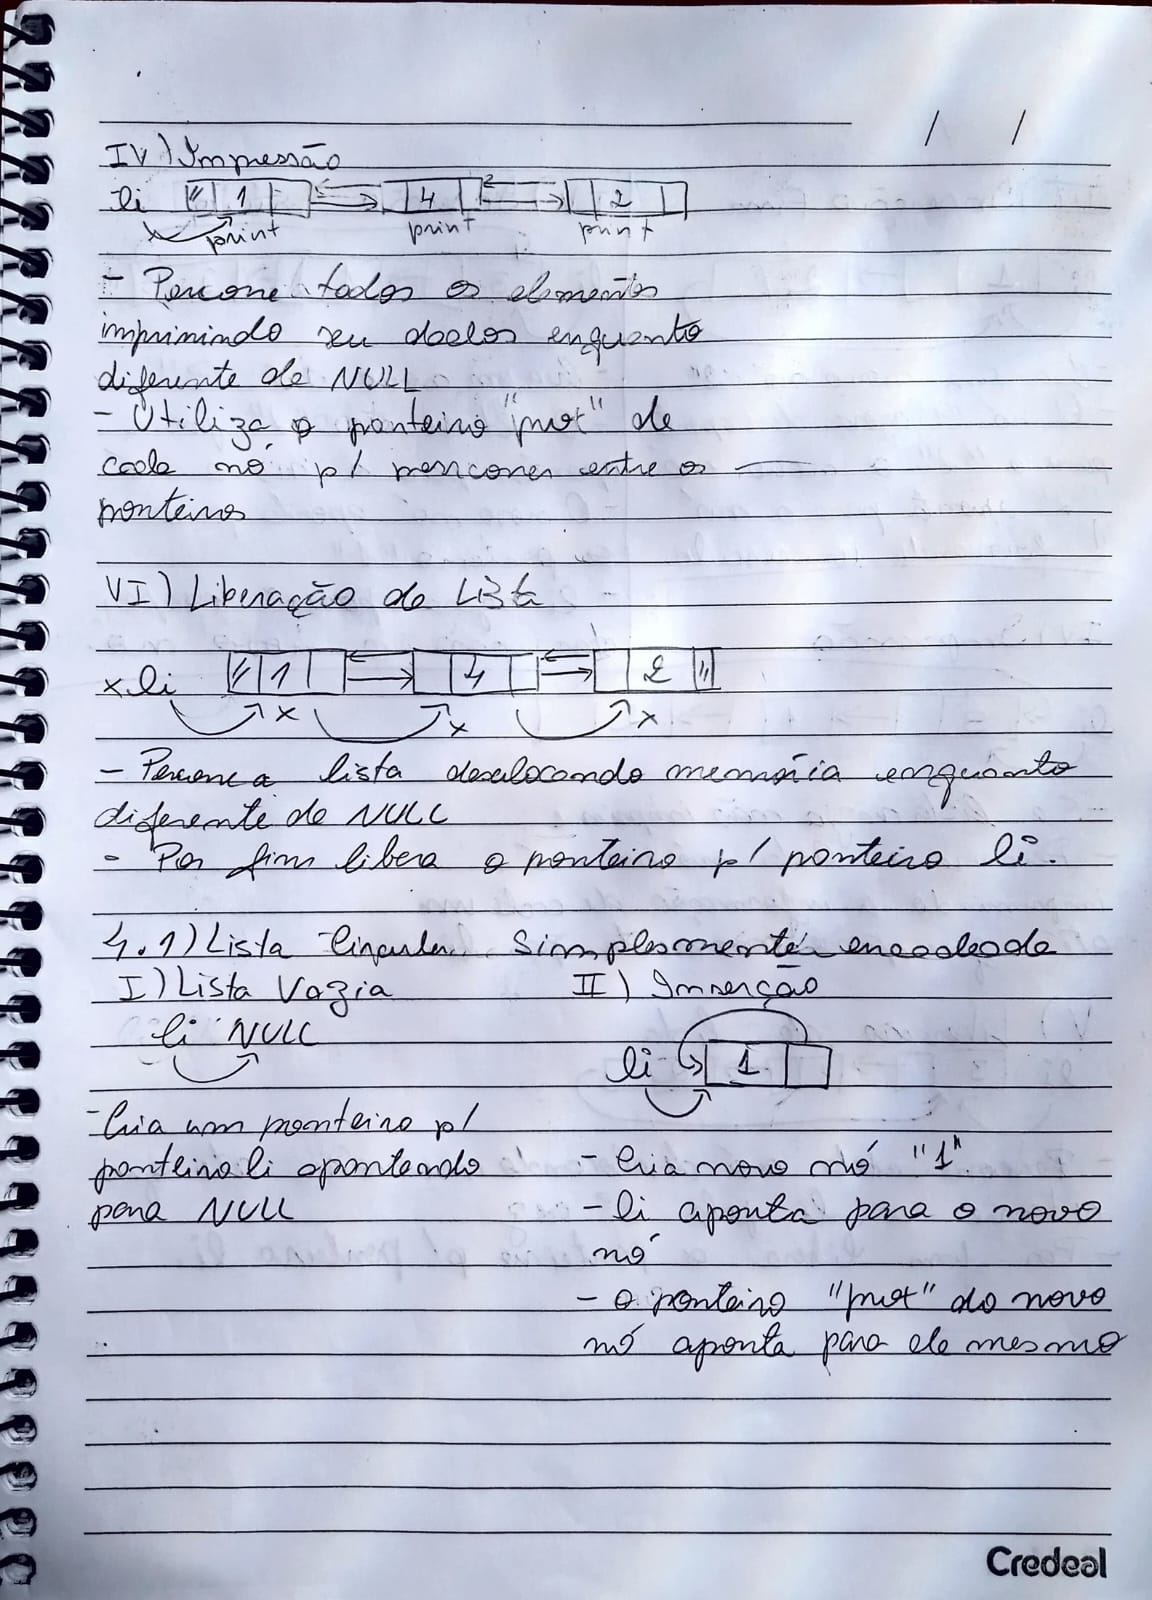 / /
IV) Impressão
li 1 4 2 2
print print print
- Percorre todos os elementos
imprimindo seu dados enquanto
diferente de NULL
- Utiliza o ponteiro "prox" de
cada nó p/ percorrer entre os
ponteiros
VI) Liberação de Lista
x li 1 4 2
x x x
- Percorre a lista desalocando memória enquanto
diferente de NULL
- Por fim libera o ponteiro p/ ponteiro li.
4.1) Lista Circular Simplesmente encadeada
I) Lista Vazia II) Inserção
li NULL
li 1
- Cria um ponteiro p/
ponteiro li apontando
para NULL
- Cria novo nó "1"
- li aponta para o novo
nó
- o ponteiro "prox" do novo
nó aponta para ele mesmo
Credeal